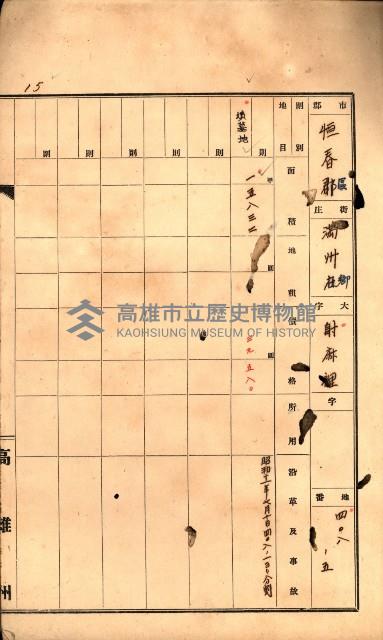 15
市郡 恒春郡 區
街庄 滿州庄 鄉
大字 射麻裡
字
地番 四〇八ノ五
地目 則別
面積
地租
價格
所用
沿革及事故
墳墓地 則
一五八三二
圓
三九五八〇
圓
昭和十一年七月十日四〇八ノ一ヨリ分割
則
則
則
則
則
則
高雄州
高雄市立歷史博物館
KAOHSIUNG MUSEUM OF HISTORY